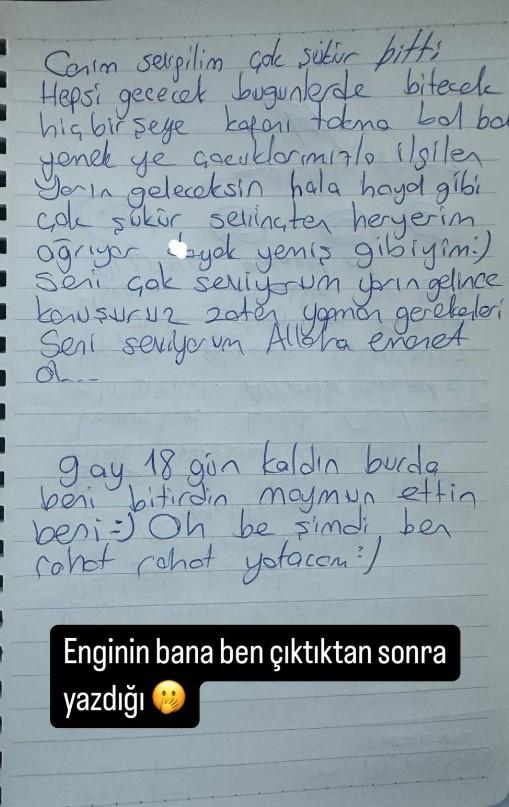 Canım sevgilim çok şükür bitti
Hepsi geçecek bugunlerde bitecek
hiçbirşeye kafanı takma bol bol
yemek ye çocuklarımızla ilgilen
Yarın geleceksin hala hayal gibi
çok şükür sevinçten heryerim
ağrıyor dayak yemiş gibiyim:)
Seni çok seviyorum yarın gelince
konuşuruz zaten yapman gerekenleri
Seni seviyorum Allaha emanet
ol...
9 ay 18 gün kaldın burda
beni bitirdin maymun ettin
beni=) Oh be şimdi ben
rahat rahat yatacam:)
Enginin bana ben çıktıktan sonra
yazdığı 🤭